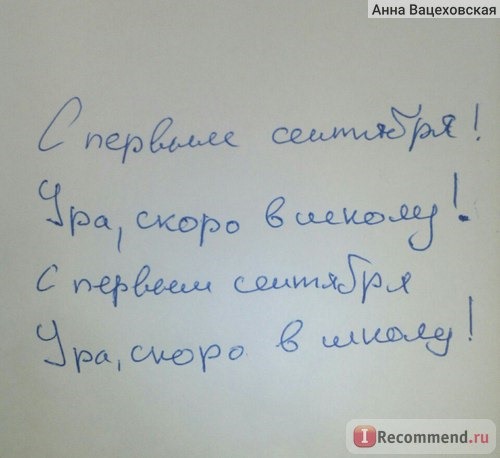 Анна Вацеховская
С первым сентября!
Ура, скоро в школу!
С первым сентября
Ура, скоро в школу!
IRecommend.ru